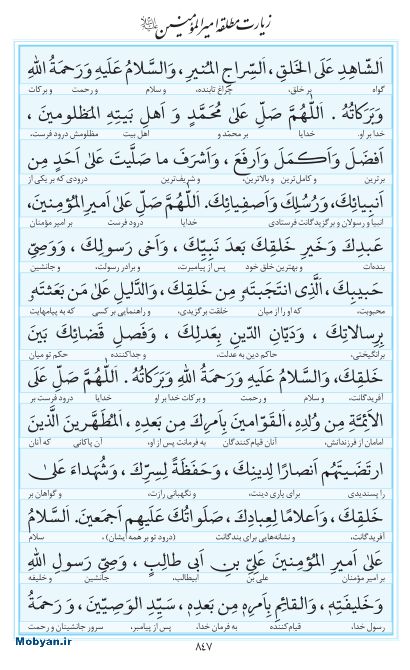 زیارت مطلقهٔ امیرالمؤمنین علیه‌السلام
اَلشّاهِدِ عَلَى الْخَلْقِ، اَلسِّراجِ الْمُنيرِ، وَالسَّلامُ عَلَيْهِ وَرَحْمَةُ اللهِ
گواه بر خلق، چراغ تابنده، و سلام و رحمت و برکات
وَبَرَكاتُهُ. اَللّهُمَّ صَلِّ عَلى مُحَمَّدٍ وَ اَهْلِ بَيْتِهِ الْمَظْلومينَ،
خدا بر او. خدایا بر محمّد و اهل بیت مظلومش درود فرست،
اَفْضَلَ وَاَكْمَلَ وَاَرْفَعَ، وَاَشْرَفَ ما صَلَّيْتَ عَلى اَحَدٍ مِنْ
برترین و کامل‌ترین و بالاترین، و شریف‌ترین درودی که بر یکی از
اَنْبِيائِكَ، وَرُسُلِكَ وَاَصْفِيائِكَ. اَللّهُمَّ صَلِّ عَلى اَميرِالْمُؤْمِنينَ،
انبیا و رسولان و برگزیدگانت فرستادی خدایا درود فرست بر امیر مؤمنان
عَبْدِكَ وَخَيْرِ خَلْقِكَ بَعْدَ نَبِيِّكَ، وَاَخى رَسولِكَ، وَوَصِيِّ
بنده‌ات و بهترین خلق خود پس از پیامبرت، و برادر رسولت، و جانشین
حَبيبِكَ، اَلَّذِى انْتَجَبْتَهُ مِنْ خَلْقِكَ، وَالدَّليلِ عَلى مَنْ بَعَثْتَهُ
محبوبت، که او را از میان خلقت برگزیدی، و راهنمایی بر کسی که به پیامهایت
بِرِسالاتِكَ، وَدَيّانِ الدّينِ بِعَدْلِكَ، وَفَصْلِ قَضائِكَ بَيْنَ
برانگیختی، حاکم دین به عدلت، و جداکننده حکم تو میان
خَلْقِكَ، وَالسَّلامُ عَلَيْهِ وَرَحْمَةُ اللهِ وَبَرَكاتُهُ. اَللّهُمَّ صَلِّ عَلَى
آفریدگانت، و سلام و رحمت و برکات خدا بر او خدایا درود فرست بر
الْاَئِمَّةِ مِنْ وُلْدِهِ، اَلْقَوّامينَ بِاَمْرِكَ مِنْ بَعْدِهِ، اَلْمُطَهَّرينَ الَّذينَ
امامان از فرزندانش، آنان قیام‌کنندگان به فرمانت پس از او، آن پاکانی که آنان
ارْتَضَيْتَهُمْ اَنْصارًا لِدينِكَ، وَحَفَظَةً لِسِرِّكَ، وَشُهَداءَ عَلى
را پسندیدی برای یاری دینت، و نگهبانی رازت، و گواهان بر
خَلْقِكَ، وَاَعْلامًا لِعِبادِكَ، صَلَواتُكَ عَلَيْهِمْ اَجْمَعينَ. اَلسَّلامُ
آفریدگانت، و نشانه‌هایی برای بندگانت (درود تو بر همه ایشان)، سلام
عَلى اَميرِ الْمُؤْمِنينَ عَلِيِّ بْنِ اَبى طالِبٍ، وَصِيِّ رَسولِ اللهِ
بر امیر مؤمنان علی بن ابیطالب، جانشین و خلیفه
وَخَليفَتِهِ، وَالْقائِمِ بِاَمْرِهِ مِنْ بَعْدِهِ، سَيِّدِ الْوَصِيّينَ، وَ رَحْمَةُ
رسول خدا، قیام‌کننده به فرمان خدا، پس از پیامبر، سرور جانشینان و رحمت
۸۴۷
Mobyan.ir